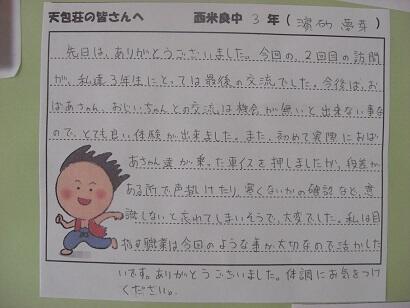 天包荘の皆さんへ 西米良中 3 年 ( 濵砂 夢芽 )
先日は、ありがとうございました。今回の、2回目の訪問
が、私達3年生にとっては最後の交流でした。今後は、おば
あさん、おじいちゃんとの交流は機会が無いと出来ない事な
ので、とても良い体験が出来ました。また、初めて実際におば
あさん達が乗った車イスを押しましたが、段差が
ある所で声掛けたり、寒くないかの確認など、意
識しないと忘れてしまいそうで、大変でした。私は目
指す職業は今回のような事が大切なので活かした
いです。ありがとうございました。体調にお気をつけ
ください。